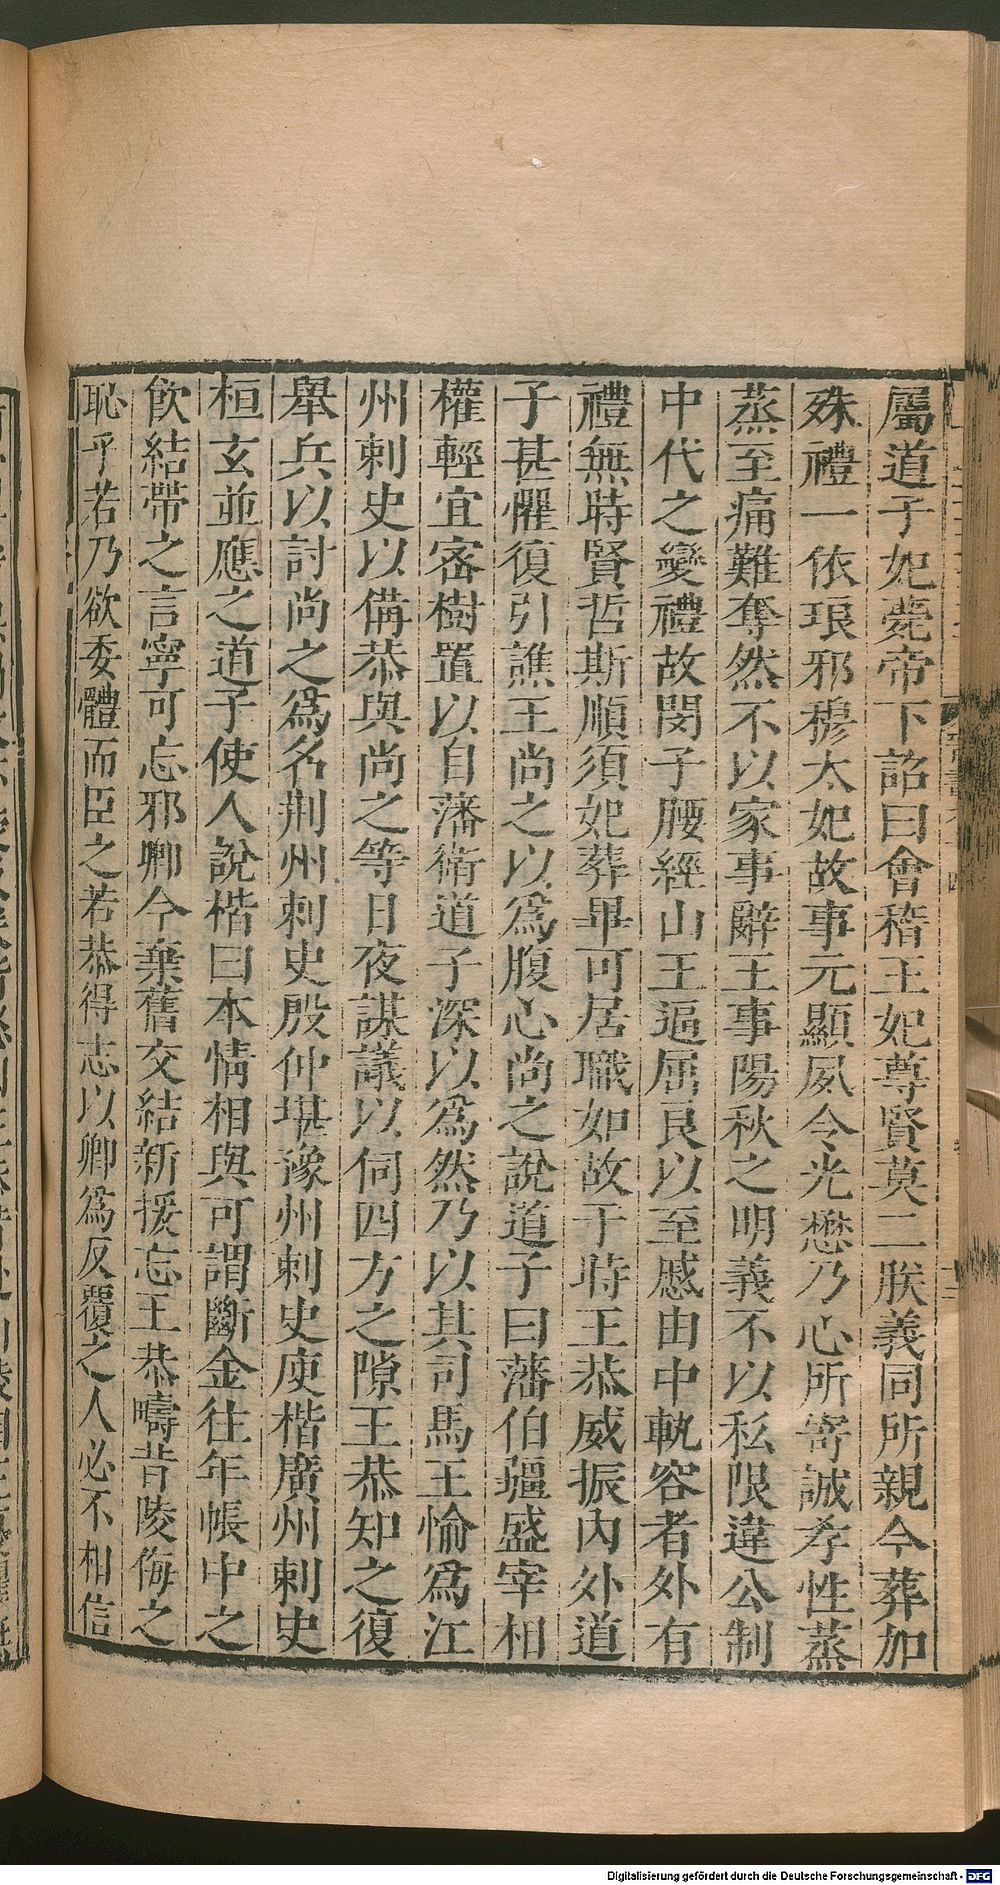 屬道子妃薨帝下詔曰會稽王妃尊賢莫二朕義同所親今葬加
殊禮一依琅邪穆太妃故事元顯夙令光懋乃心所寄誠孝性蒸
蒸至痛難奪然不以家事辭王事陽秋之明義不以私限違公制
中代之變禮故閔子腰絰山王逼屈良以至慼由中軌容者外有
禮無時賢哲斯順須妃葬畢可居職如故于時王恭威振內外道
子甚懼復引譙王尚之以為腹心尚之說道子曰藩伯彊盛宰相
權輕宜密樹置以自藩衛道子深以為然乃以其司馬王愉為江
州刺史以備恭與尚之等日夜謀議以伺四方之隙王恭知之復
舉兵以討尚之為名荆州刺史殷仲堪豫州刺史庾楷廣州刺史
桓玄並應之道子使人說楷曰本情相與可謂斷金往年帳中之
飲結帶之言寧可忘邪卿今棄舊交結新援忘王恭疇昔陵侮之
恥乎若乃欲委體而臣之若恭得志以卿為反覆之人必不相信
Digitalisierung gefördert durch die Deutsche Forschungsgemeinschaft - DFG